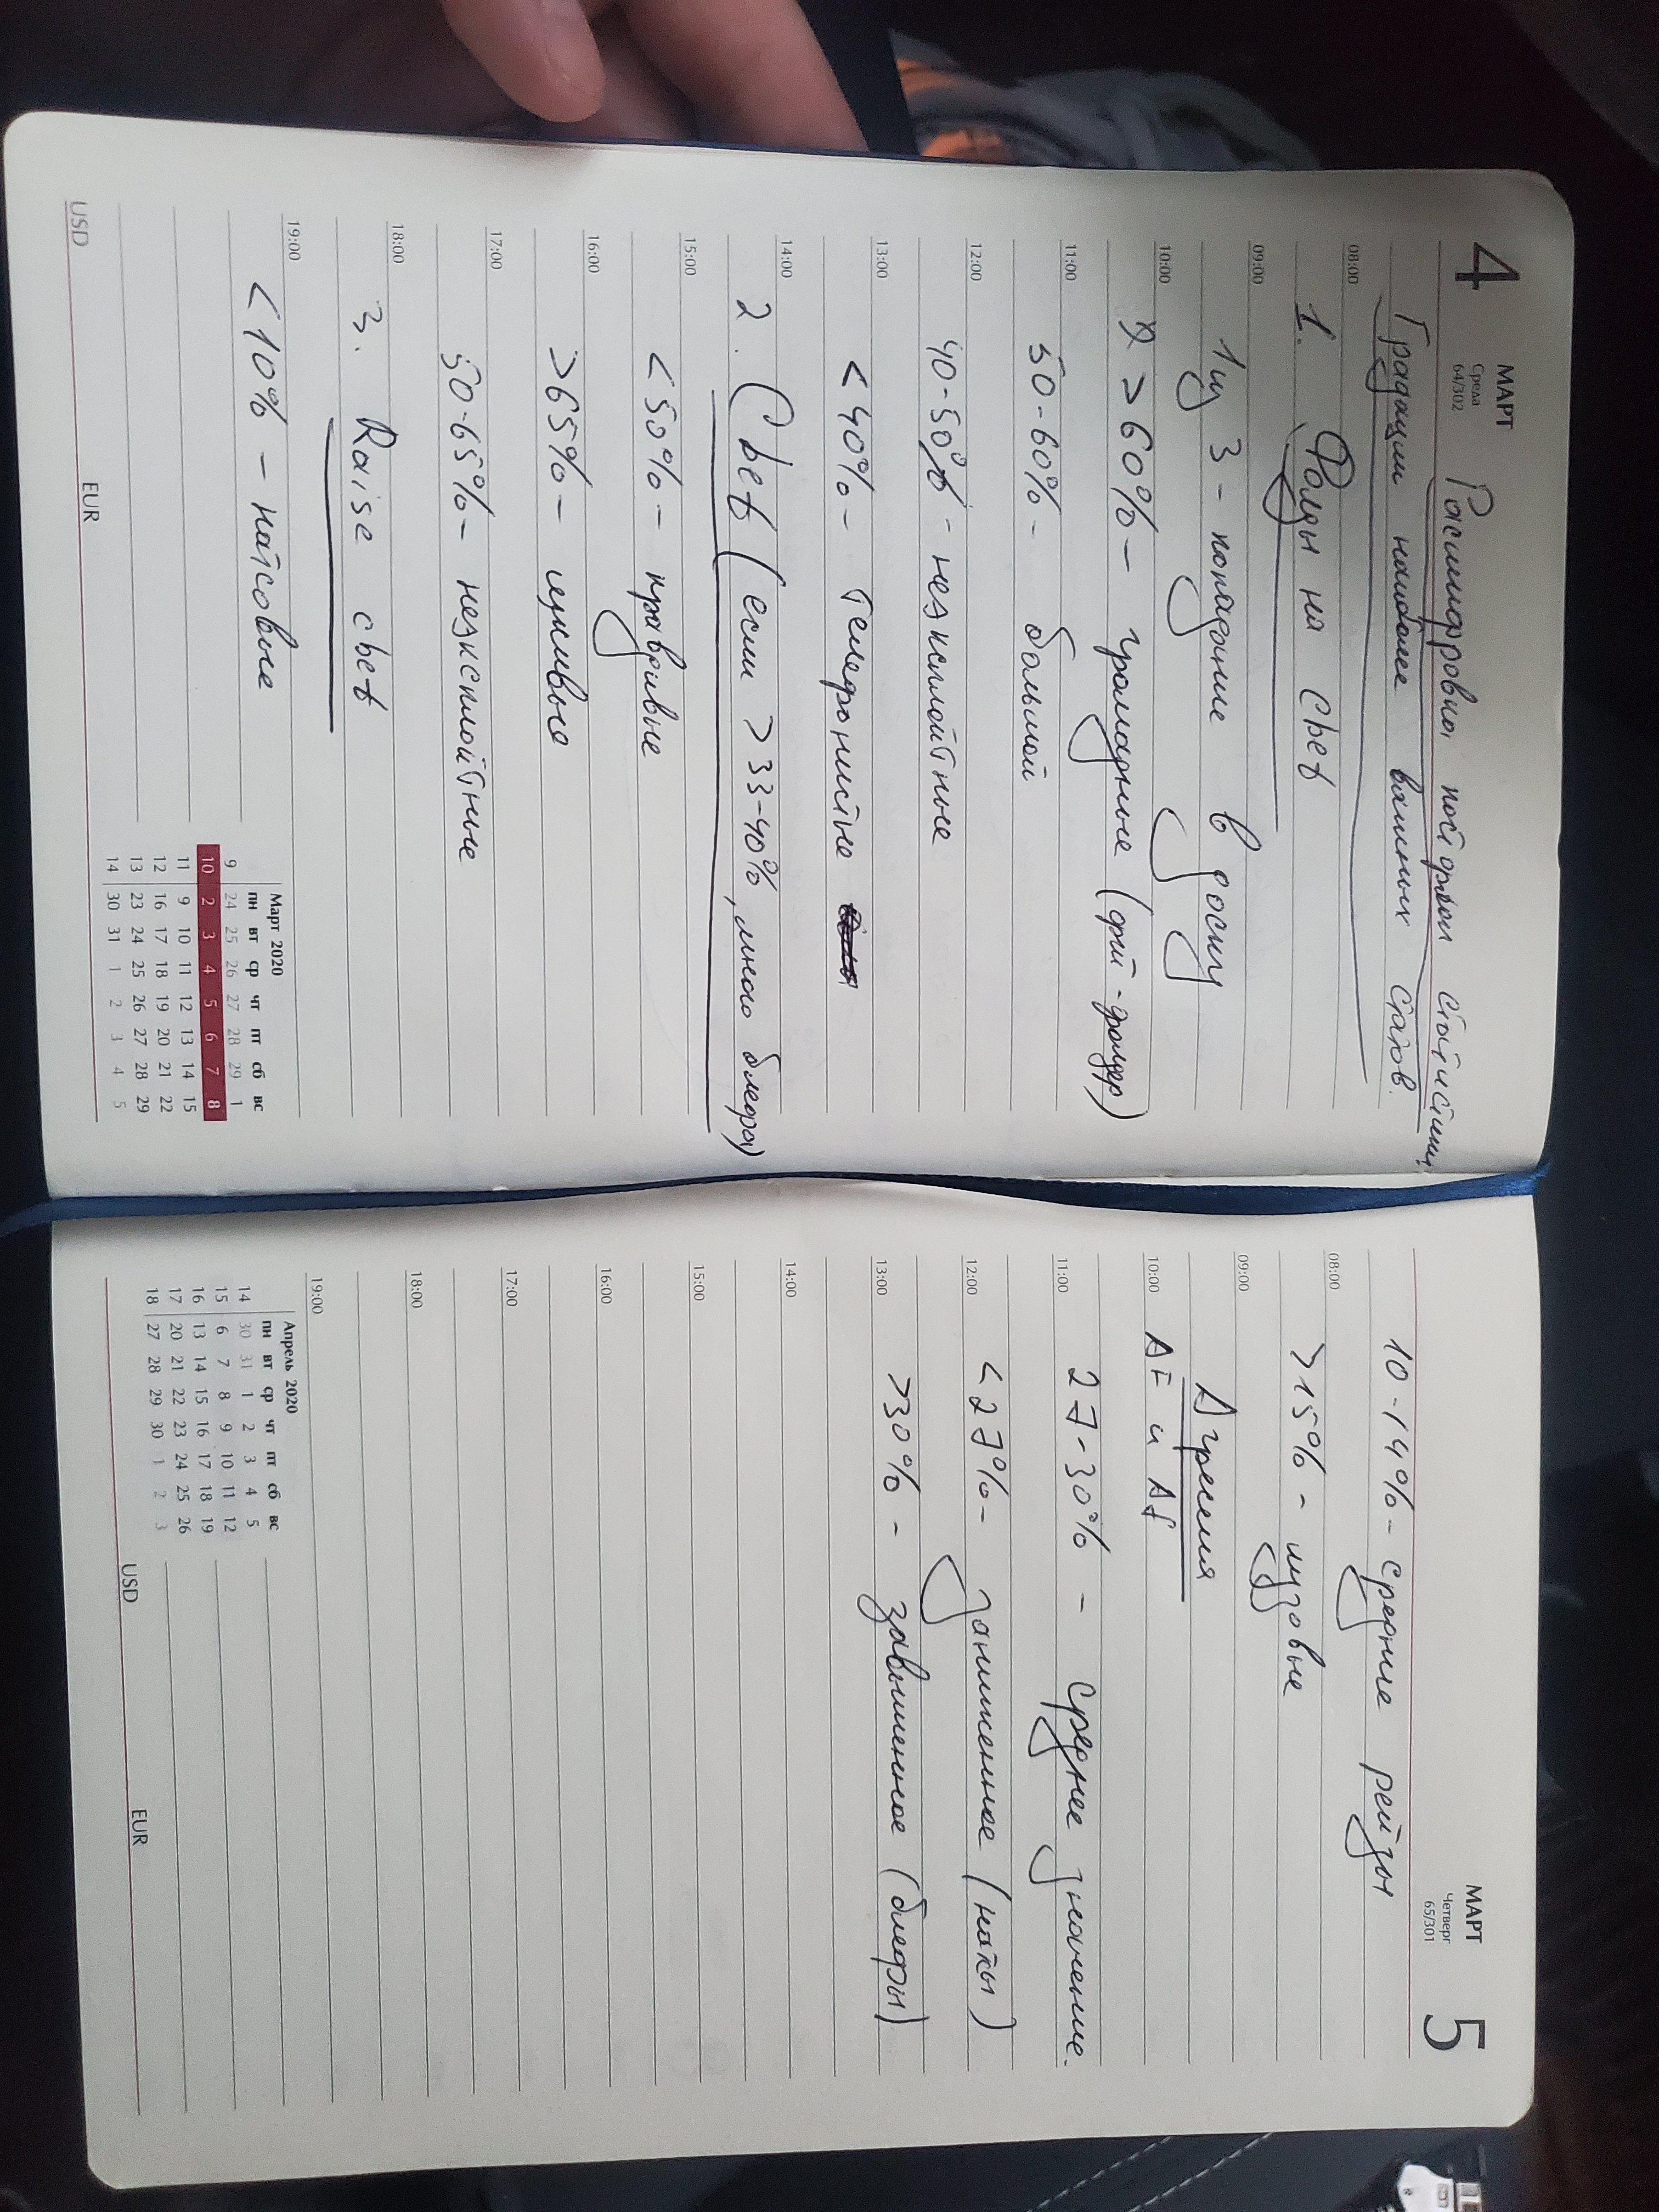 4
МАРТ
Среда
64/302
Расшифровка постфлоп статистики
Градации наиболее важных статов.
08:00
1. Фолды на cbet
09:00
1 из 3 - попадание в доску
10:00
>60% - громадные (фит-фолдер)
11:00
50-60% - большой
12:00
40-50% - неэксплойтные
13:00
<40% - телефонистые
14:00
2. Cbet (если >33-40%, много блефа)
15:00
<50% - правдивые
16:00
>65% - лживые
17:00
50-65% - неэксплойтные
18:00
3. Raise cbet
19:00
<10% - натсовые
Март 2020
пн вт ср чт пт сб вс
9 24 25 26 27 28 29 1
10 2 3 4 5 6 7 8
11 9 10 11 12 13 14 15
12 16 17 18 19 20 21 22
13 23 24 25 26 27 28 29
14 30 31 1 2 3 4 5
USD EUR
МАРТ
Четверг
65/301
5
10-14% - средние рейзы
08:00
>15% - лузовые
09:00
Агрессия
10:00
AF и Af
11:00
27-30% - среднее значение.
12:00
<27% - заниженное (натсы)
13:00
>30% - завышенное (блефы)
14:00
15:00
16:00
17:00
18:00
19:00
Апрель 2020
пн вт ср чт пт сб вс
14 30 31 1 2 3 4 5
15 6 7 8 9 10 11 12
16 13 14 15 16 17 18 19
17 20 21 22 23 24 25 26
18 27 28 29 30 1 2 3
USD EUR